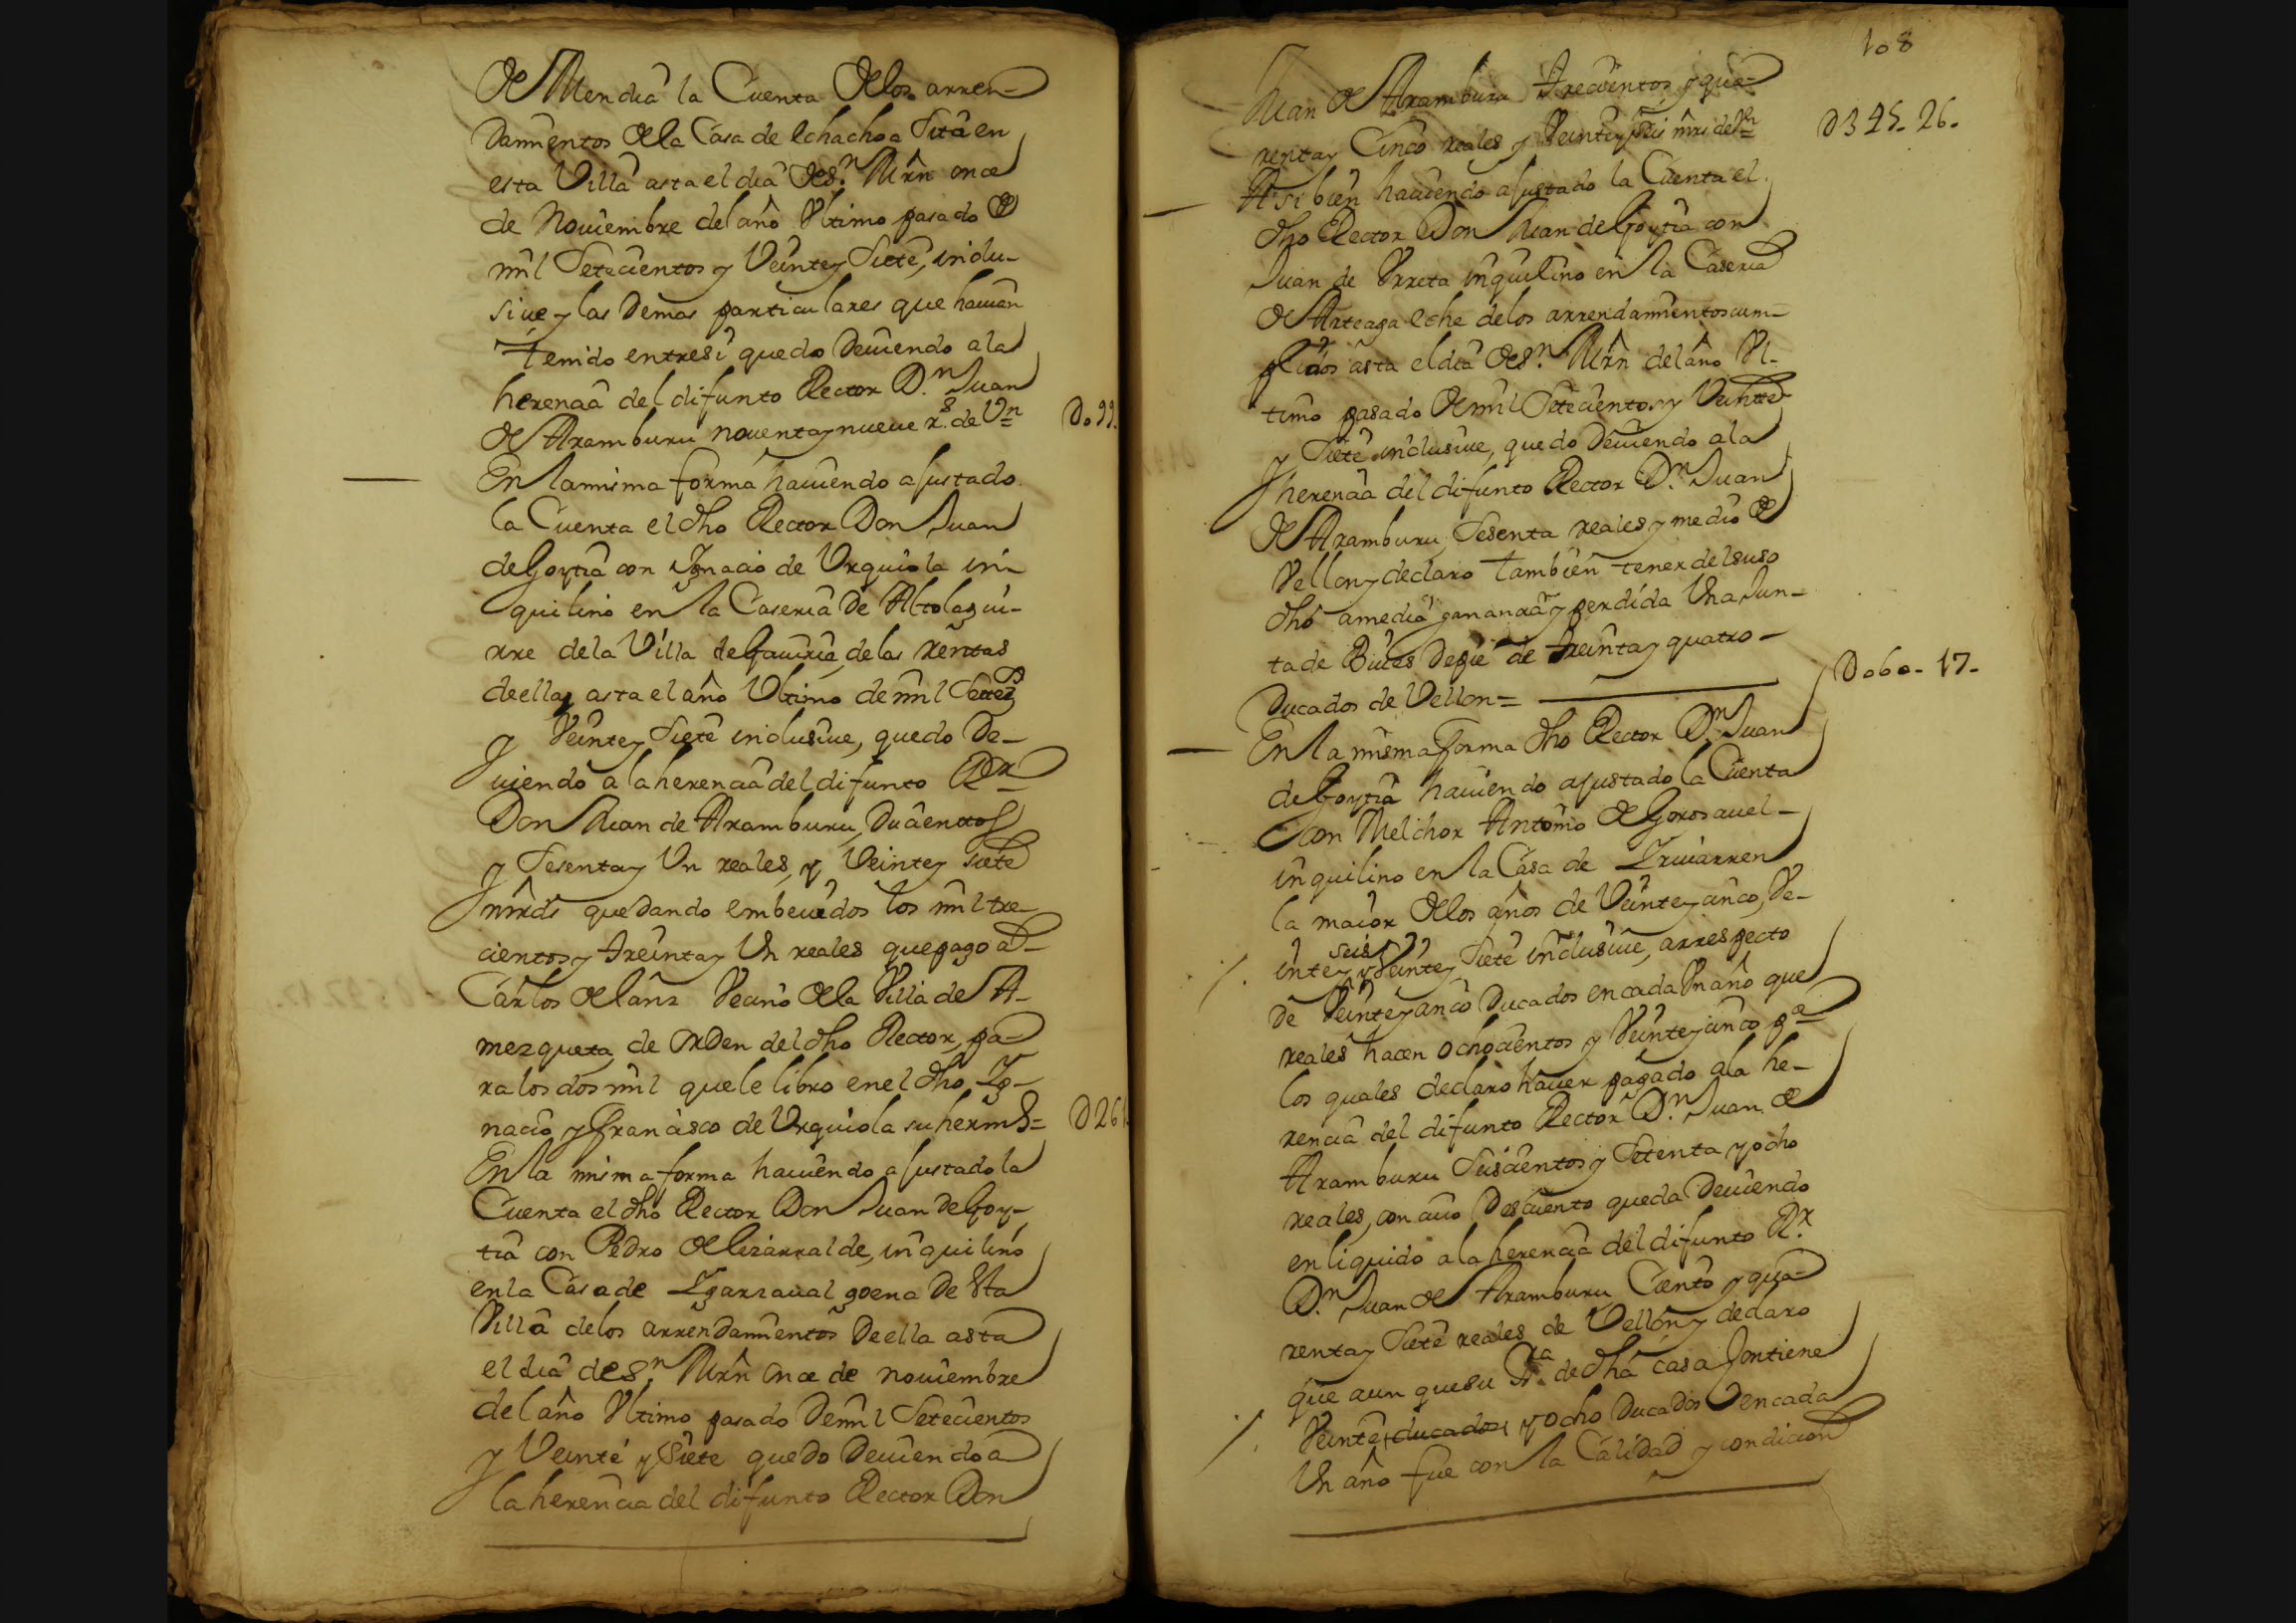 de Mendia la Cuenta de los arren-
damientos de la Casa de echachoa sita en
esta Villa asta el dia de sn. Mrn once
de Noviembre del año Vltimo pasado de
mil Setecientos y Veinte y Siete, inclu-
sive y las demas particulares que havian
tenido entre si quedo deviendo a la
herencia del difunto Rector Dn. Juan
de Aramburu noventa y nueve rs. de Vn=
Do99
En la misma forma haviendo ajustado
la Cuenta el dho Rector Don Juan
de Goytia con Ignacio de Vrquiola in-
quilino en la Caseria de Altolagui-
rre de la Villa de Gaviria, de las rentas
de ella, asta el año Vltimo de mil Setezs
y Veinte y Siete inclusive, quedo de-
viendo a la herencia del difunto Rr
Don Juan de Aramburu, Ducientos
y Sesenta y Vn reales, y Veinte y siete
mrds quedando embevidos los mil tre-
cientos y treinta y Vn reales que pago a
Carlos de lanz Vecino de la Villa de A-
mezqueta de orden del dho Rector, pa-
ra los dos mil que le libro en el dho Ig-
nacio y Francisco de Vrquiola su hermo=
D261
En la misma forma haviendo ajustado la
Cuenta el dho Rector Don Juan de Goy-
tia con Pedro de lizarralde, inquilino
en la Casa de Igarzaval goena de esta
Villa de los arrendamientos de ella asta
el dia de Sn. Mrn once de noviembre
del año Vltimo pasado de mil Setecientos
y Veinte y Siete quedo deviendo a
la herencia del difunto Rector Don
108
Juan de Aramburu trecientos y qua-
renta y Cinco reales y Veinte y seis mrs de Vn=
D345-26-
Asi bien haviendo ajustado la Cuenta el
dho Rector Don Juan de Goytia con
Juan de Vrreta inquilino en la Caseria
de Arteaga eche de los arrendamientos cum-
plidos asta el dia de Sn. Mrn del año Vl-
timo pasado de mil Setecientos y Veinte
y Siete inclusive, quedo deviendo a la
herencia del difunto Rector Dn. Juan
de Aramburu, Sesenta reales y medio de
Vellon y declaro tambien tener del suso
dho a media ganancia y perdida Vna Jun-
ta de Bueies de pie de treinta y quatro-
Ducados de Vellon=
Do60-17-
En la misma forma dho Rector Dn. Juan
de Goytia haviendo ajustado la Cuenta
con Melchor Antonio de Gorosavel-
inquilino en la Casa de Yruiarren
la maior de los años de Veinte y cinco, Ve-
inte y seis y Veinte y Siete inclusive, arrespecto
de Veinte y cinco Ducados en cada Vn año que
reales hacen ochocientos y Veinte y cinco pa
los quales declaro haver pagado a la he-
rencia del difunto Rector Dn. Juan de
Aramburu Seiscientos y Setenta y ocho
reales, con cuio Descuento queda deviendo
en liquido a la herencia del difunto Rr.
Dn. Juan de Aramburu Ciento y qua-
renta y Siete reales de Vellon y declaro
que aun que su de dha casa Contiene
Veinte ducados y ocho Ducados en cada
Vn año fue con la Calidad y condicion